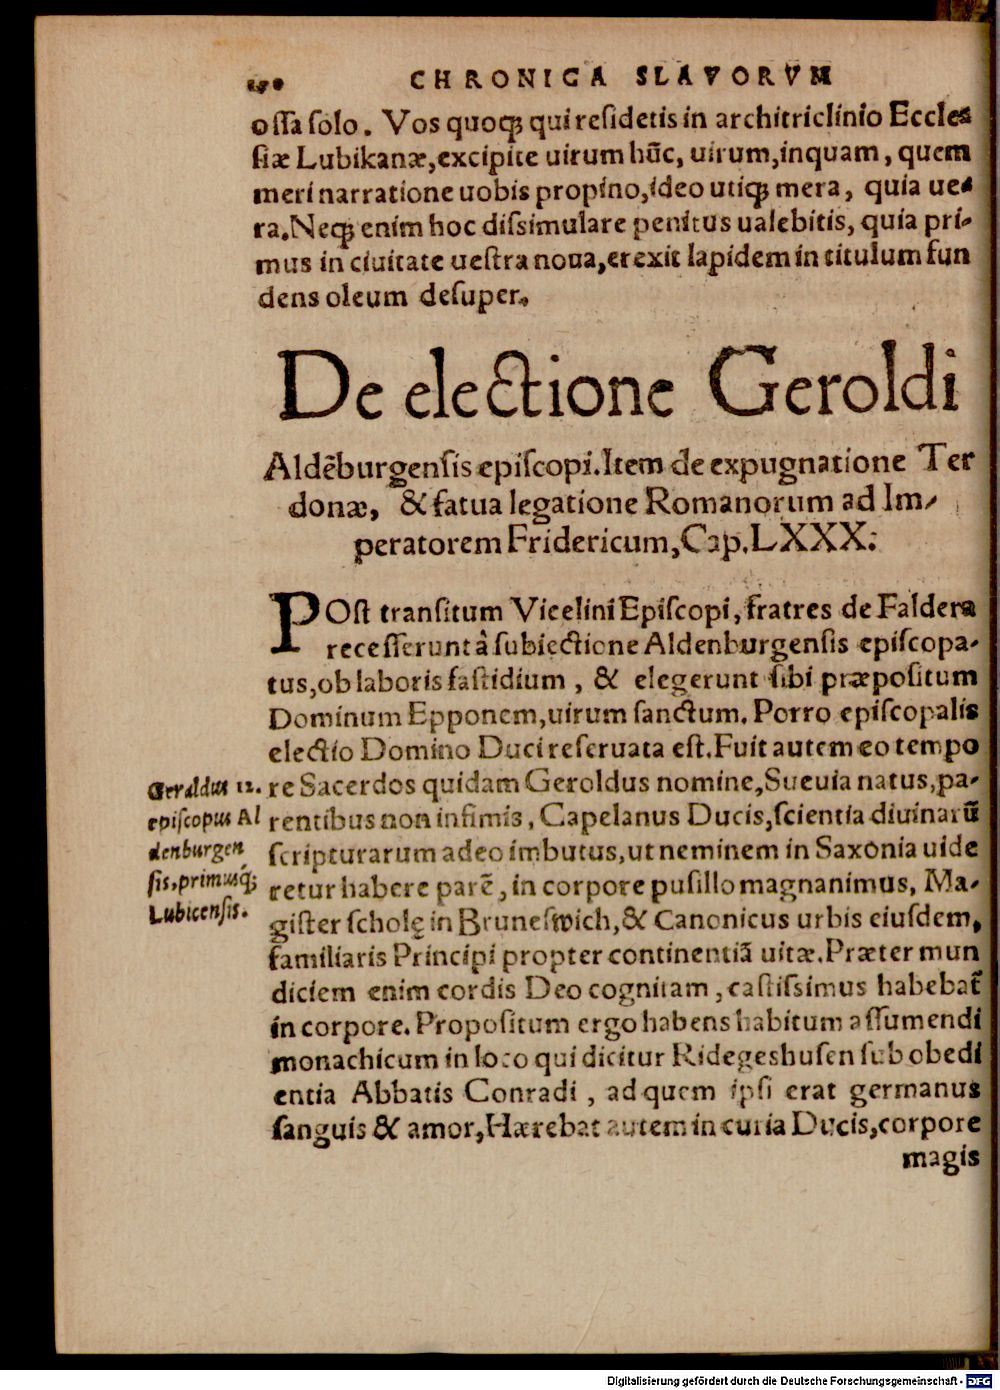 CHRONICA SLAVORVM
ossa solo. Vos quoqꝫ qui residetis in architriclinio Eccle⸗
siæ Lubikanæ,excipite uirum hũc, uirum,inquam, quem
meri narratione uobis propino,ideo utiqꝫ mera, quia ue⸗
ra.Neqꝫ enim hoc dissimulare penitus ualebitis, quia pri⸗
mus in ciuitate uestra noua,erexit lapidem in titulum fun
dens oleum desuper.
De electione Geroldi
Aldẽburgensis episcopi.Item de expugnatione Ter
donæ, & fatua legatione Romanorum ad Im⸗
peratorem Fridericum,Cap.LXXX.
POst transitum Vicelini Episcopi, fratres de Faldera
recesserunt â subiectione Aldenburgensis episcopa⸗
tus,ob laboris fastidium, & elegerunt sibi præpositum
Dominum Epponem,uirum sanctum. Porro episcopalis
electio Domino Duci reseruata est.Fuit autem eo tempo
re Sacerdos quidam Geroldus nomine,Sueuia natus,pa⸗
rentibus non infimis, Capelanus Ducis,scientia diuinarũ
scripturarum adeo imbutus,ut neminem in Saxonia uide
retur habere parẽ, in corpore pusillo magnanimus, Ma⸗
gister scholę in Bruneswich,& Canonicus urbis eiusdem,
familiaris Principi propter continentiã uitæ.Præter mun
diciem enim cordis Deo cognitam, castissimus habebat̃
in corpore. Propositum ergo habens habitum assumendi
monachicum in loco qui dicitur Ridegeshusen sub obedi
entia Abbatis Conradi, ad quem ipsi erat germanus
sanguis & amor,Hærebat autem in curia Ducis,corpore
magis
Geroldus 12.
episcopus Al
denburgen
sis,primusq;
Lubicensis.
Digitalisierung gefördert durch die Deutsche Forschungsgemeinschaft - DFG